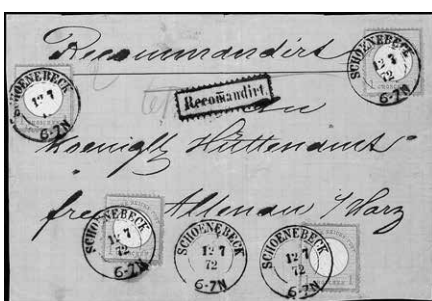 Recommandirt
SCHOENEBECK
12 7
72
6-7N
SCHOENEBECK
12 7
6-7N
Recomandirt.
Koenigl. Hüttenamt
frei Altenau / Harz
SCHOENEBECK
12 7
72
6-7N
SCHOENEBECK
12 7
72
6-7N
SCHOENEBECK
12 7
72
6-7N